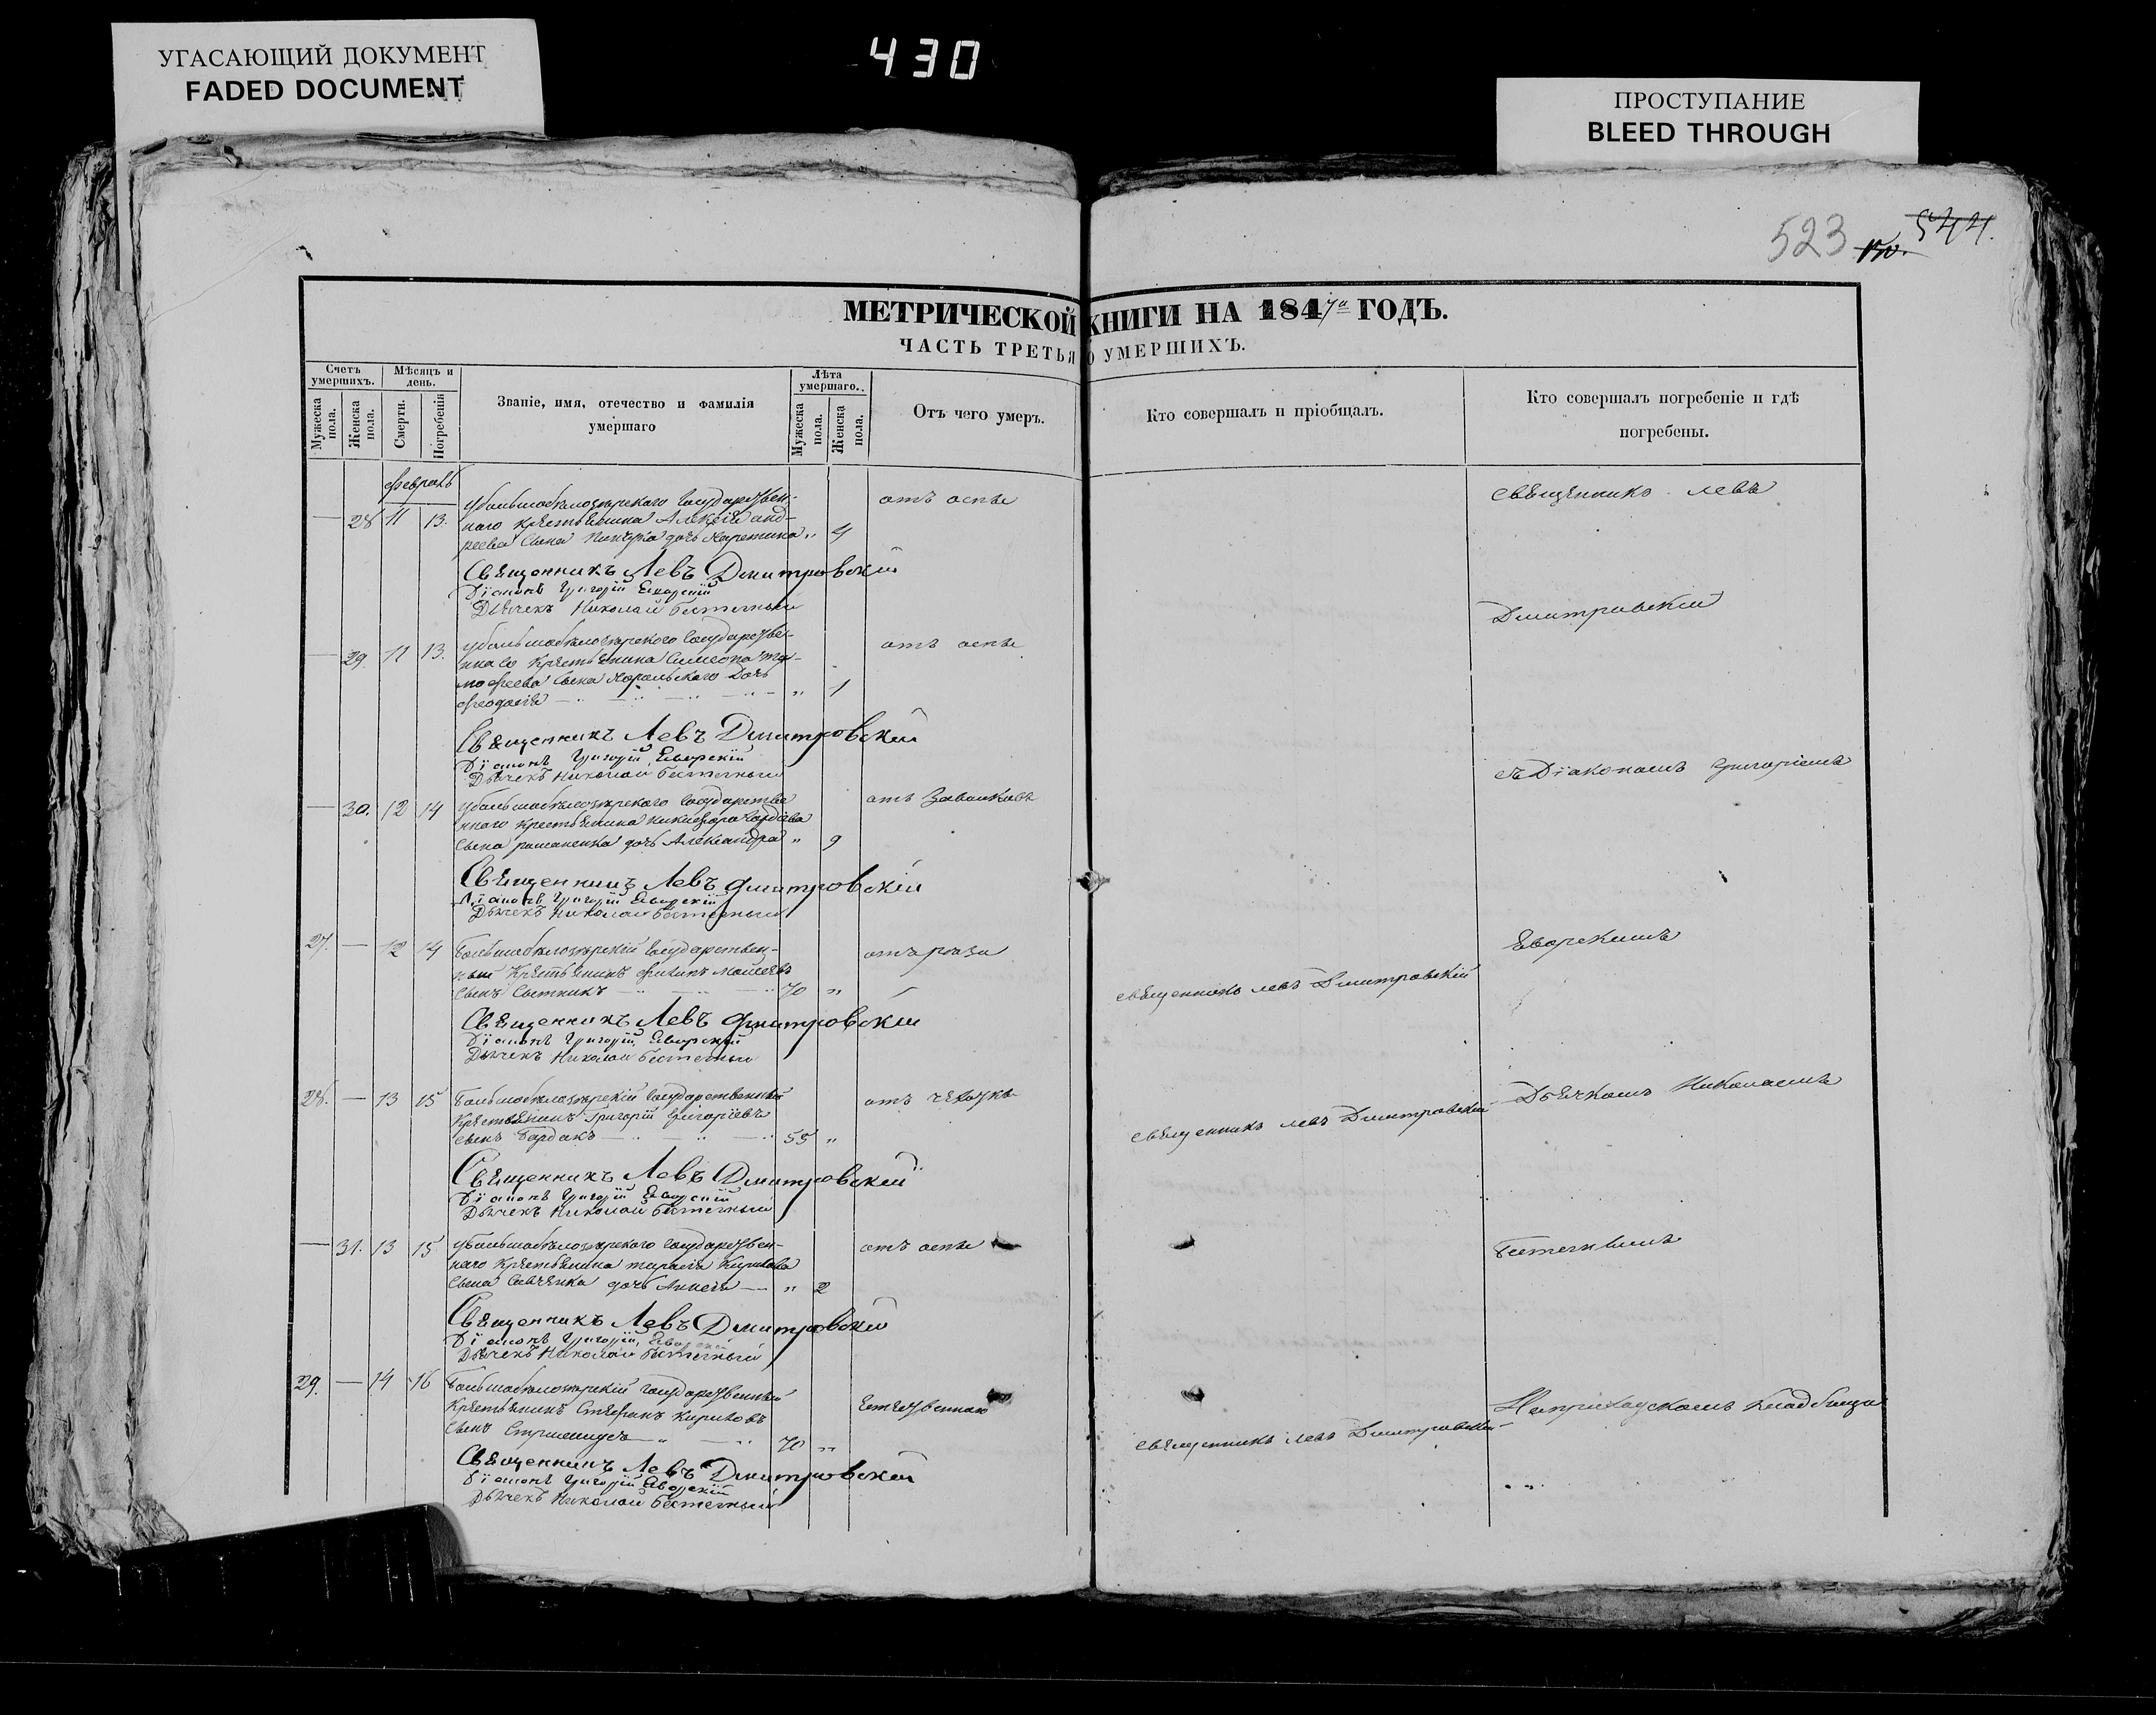 УГАСАЮЩИЙ ДОКУМЕНТ
FADED DOCUMENT
430
ПРОСТУПАНИЕ
BLEED THROUGH
523 544.
МЕТРИЧЕСКОЙ КНИГИ НА 1847 ГОДЪ.
ЧАСТЬ ТРЕТЬЯ О УМЕРШИХЪ.
Счетъ умершихъ.
Мѣсяцъ и день.
Званіе, имя, отечество и фамилія умершаго
Лѣта умершаго.
Отъ чего умеръ.
Кто совершалъ и пріобщалъ.
Кто совершалъ погребеніе и гдѣ
погребены.
Мужеска пола.
Женска пола.
Смерти.
Погребенія
Мужеска пола.
Женска пола.
Февраль
убольшобѣлозѣрского Государствен-
отъ оспы
священникъ левъ
— 28 11 13. наго крестьянина Алексѣя анд-
реева сына дочь „ 4
Священникъ Левъ Дмитровскій
Діаконъ Григорій Еворскій
Дьячекъ Николай Бѣстечный
Дмитровскій
убольшобѣлозѣрского Государствен-
отъ оспы
— 29. 11 13. Крестьянина Симеона
сына дочь
Феодосія — „ 1
Священникъ Левъ Дмитровскій
Діаконъ Григорій Еворскій
Дьячекъ Николай Бѣстечный
съ Діакономъ Григоріемъ
— 30. 12 14 убольшобѣлозѣрского Государстве
ннаго крестьянина Никифора
сына дочь Александра „ 9
Священникъ Левъ Дмитровскій
Діаконъ Григорій Еворскій
Дьячекъ Николай Бѣстечный
Еворскимъ
27. — 12 14 Большобѣлозѣрскій Государствен-
ный Крестьянинъ Филипъ Моисеевъ
сынъ Сытникъ — 70 „
священникъ левъ Дмитровскій
Священникъ Левъ Дмитровскій
Діаконъ Григорій Еворскій
Дьячекъ Николай Бѣстечный
28. — 13 15 Большобѣлозѣрскій Государственный
Крестьянинъ Григорій Григоріевъ
сынъ Бардакъ — 55 „
священникъ левъ Дмитровскій
Дьячкомъ Николаемъ
Священникъ Левъ Дмитровскій
Діаконъ Григорій Еворскій
Дьячекъ Николай Бѣстечный
— 31. 13 15 убольшобѣлозѣрского Государствен-
отъ оспы
наго Крестьянина Кирилова
сына Савченка дочь — „ 2
Бѣстечнымъ
Священникъ Левъ Дмитровскій
Діаконъ Григорій Еворскій
Дьячекъ Николай Бѣстечный
29. — 14 16 Большобѣлозѣрскій Государственный
Крестьянинъ Стефанъ Кириловъ
сынъ — 70 „
священникъ левъ Дмитровскій
Наприходскомъ кладбищѣ
Священникъ Левъ Дмитровскій
Діаконъ Григорій Еворскій
Дьячекъ Николай Бѣстечный